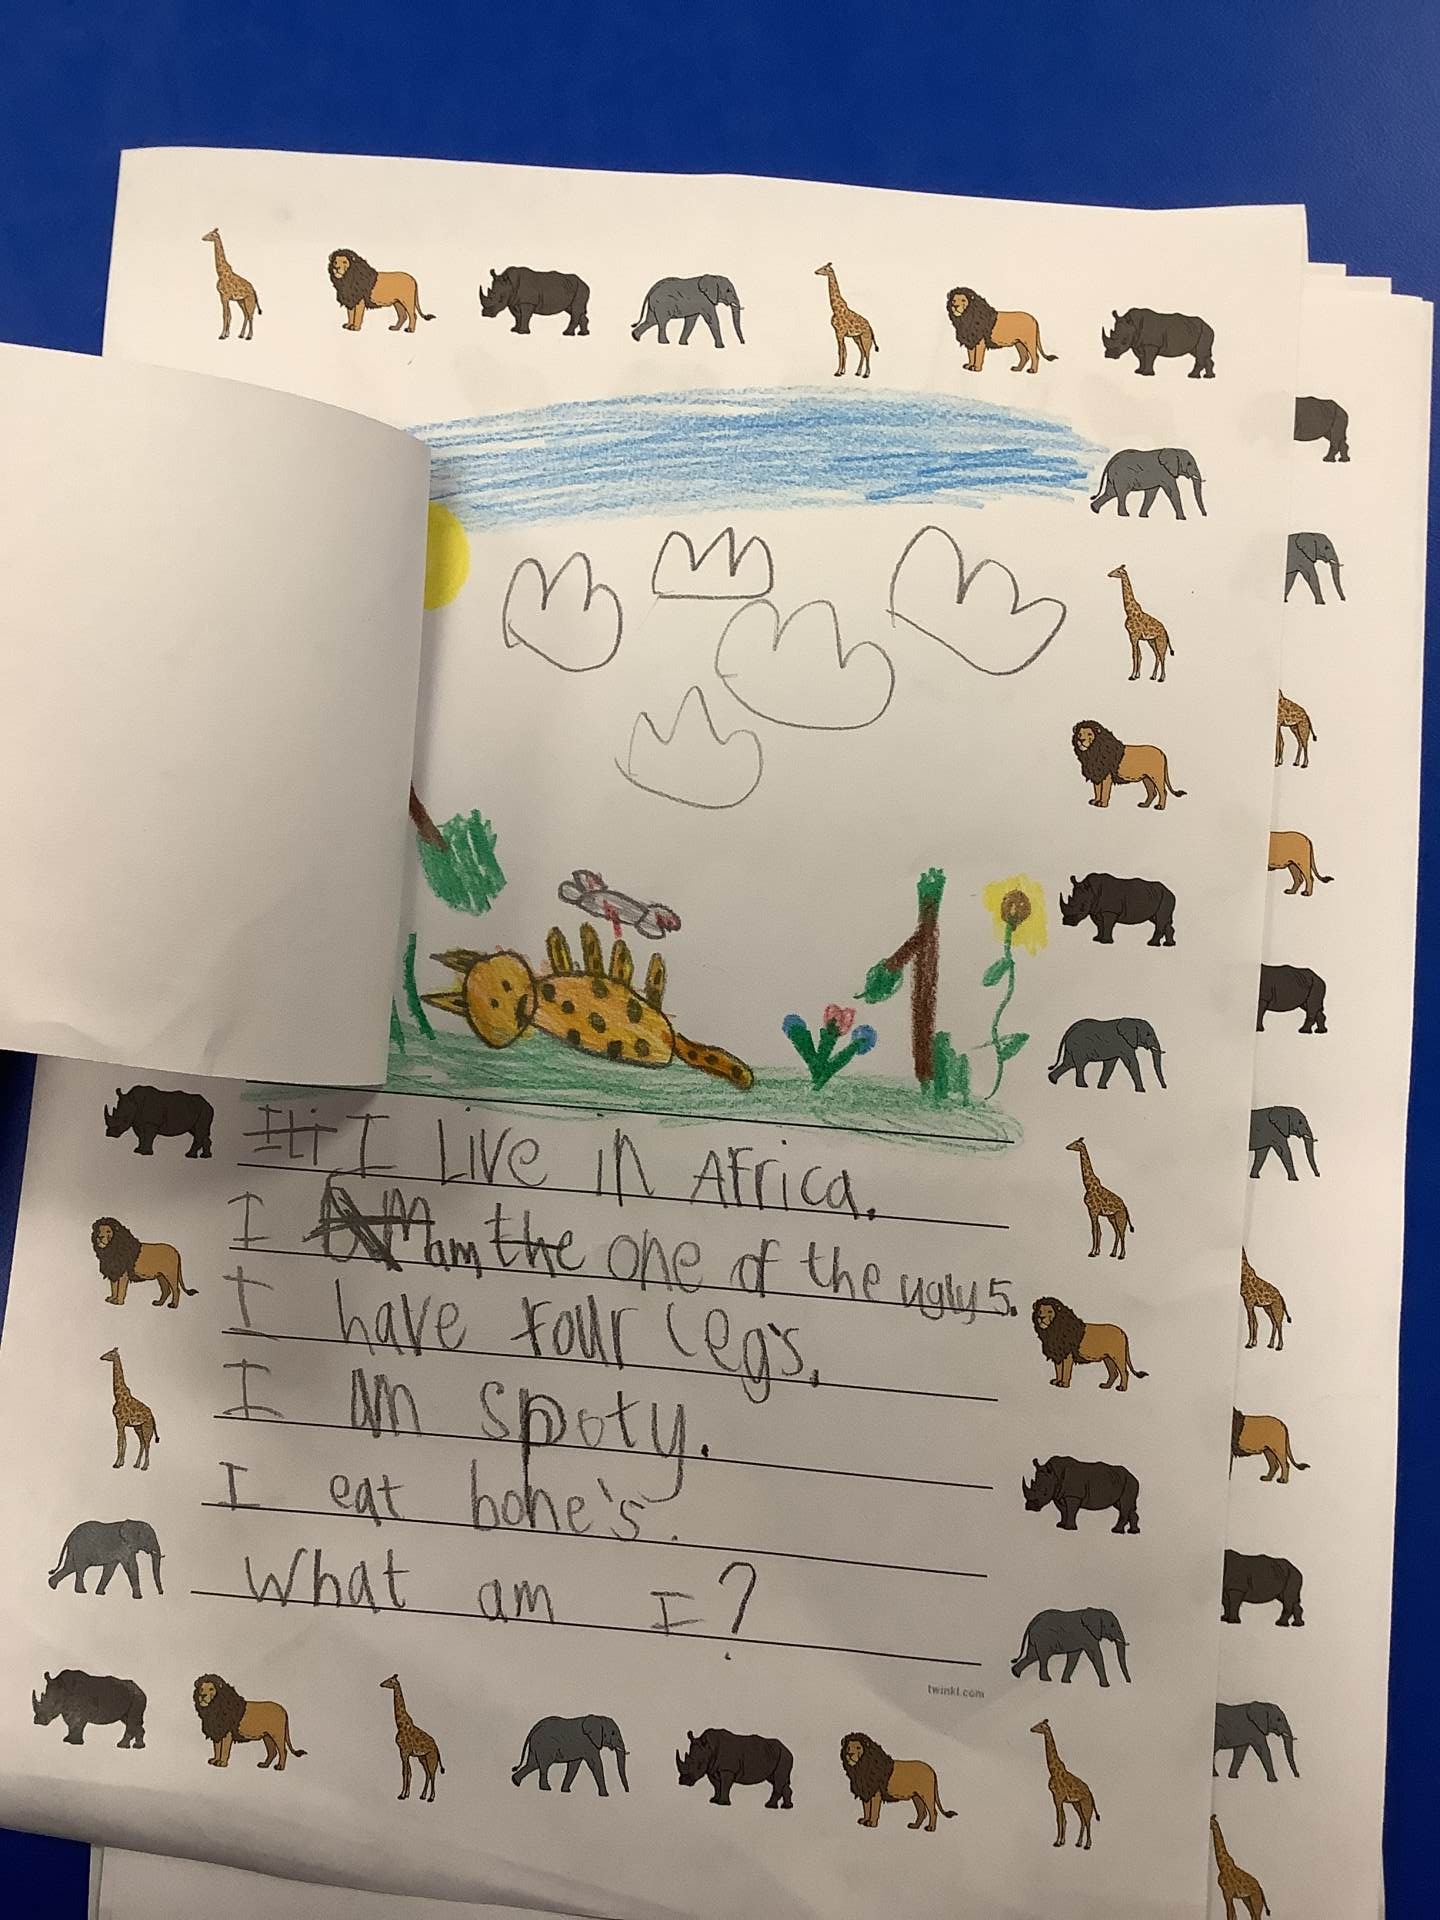 Hi I Live in Africa.
I am the one of the ugly 5.
I have four legs.
I am spoty.
I eat bone's.
What am I?
twinkl.com